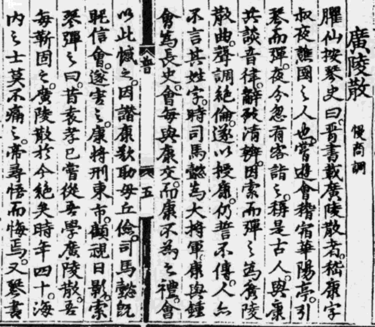 廣陵散 慢商調
臞仙按琴史曰晋書載廣陵散者嵇康字
叔夜譙國之人也嘗遊會稽宿華陽亭引
琴而彈夜分忽有客詣之稱是古人與康
共談音律辭致清辨因索而彈之為廣陵
散曲聲調絕倫遂以授康仍誓不傳人亦
不言其姓字時司馬懿為大將軍康與鍾
會為長史會每與康交而康不為之禮會
五
以此憾之因譖康欲助毋丘儉司馬懿既
昵信會遂害之康將刑東市顧視日影索
琴彈之曰昔袁孝已嘗從吾學廣陵散吾
每靳固之廣陵散於今絕矣時年四十海
內之士莫不痛之帝尋悟而悔焉又琴書